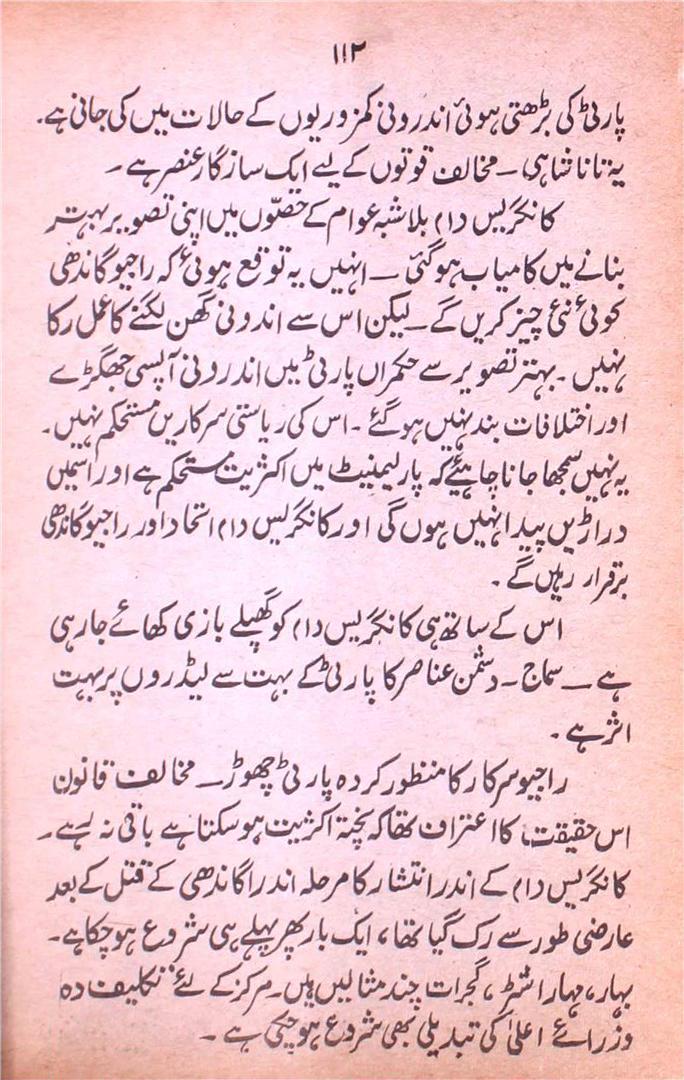 ۱۱۲
پارٹی کی بڑھتی ہوئی اندرونی کمزوریوں کے حالات میں کی جاتی ہے۔
یہ تانا شاہی ۔ مخالف قوتوں کے لیے ایک سازگار عنصر ہے ۔
کانگریس (ا) بلاشبہ عوام کے حصّوں میں اپنی تصویر بہتر
بنانے میں کامیاب ہوگئی ــ انہیں یہ توقع ہوئی کہ راجیو گاندھی
کوئی نئی چیز کریں گے ۔ لیکن اس سے اندونی گھن لگنے کا عمل رکا
نہیں ۔ بہتر تصویر سے حکمراں پارٹی میں اندرونی آپسی جھگڑے
اور اختلافات بند نہیں ہوگئے ۔ اس کی ریاستی سرکاریں مستحکم نہیں ۔
یہ نہیں سمجھا جانا چاہیئے کہ پارلیمنیٹ میں اکثریت مستحکم ہے اور اسمیں
دراڑیں پیدا نہیں ہوں گی اور کانگریس (ا) اتحاد اور راجیو گاندھی
برقرار رہیں گے ۔
اس کے ساتھ ہی کانگریس (ا) کو گھپلے بازی کھائے جارہی
ہے ــ سماج ۔ دشمن عناصر کا پارٹی کے بہت سے لیڈروں پر بہت
اثر ہے ۔
راجیو سرکار کا منظور کردہ پارٹی چھوڑ ــ مخالف قانون
اس حقیقت کا اعتراف تھا کہ پختہ اکثریت ہوسکتا ہے باقی نہ رہے ۔
کانگریس (ا) کے اندر انتشار کا مرحلہ اندرا گاندھی کے قتل کے بعد
عارضی طور سے رک گیا تھا، ایک بار پھر پہلے ہی شروع ہوچکا ہے ۔
بہار، مہاراشٹر، گجرات چند مثالیں ہیں ۔ مرکز کے لئے ”تکلیف دہ
وزرائے اعلیٰ کی تبدیلی بھی شروع ہوچکی ہے ۔